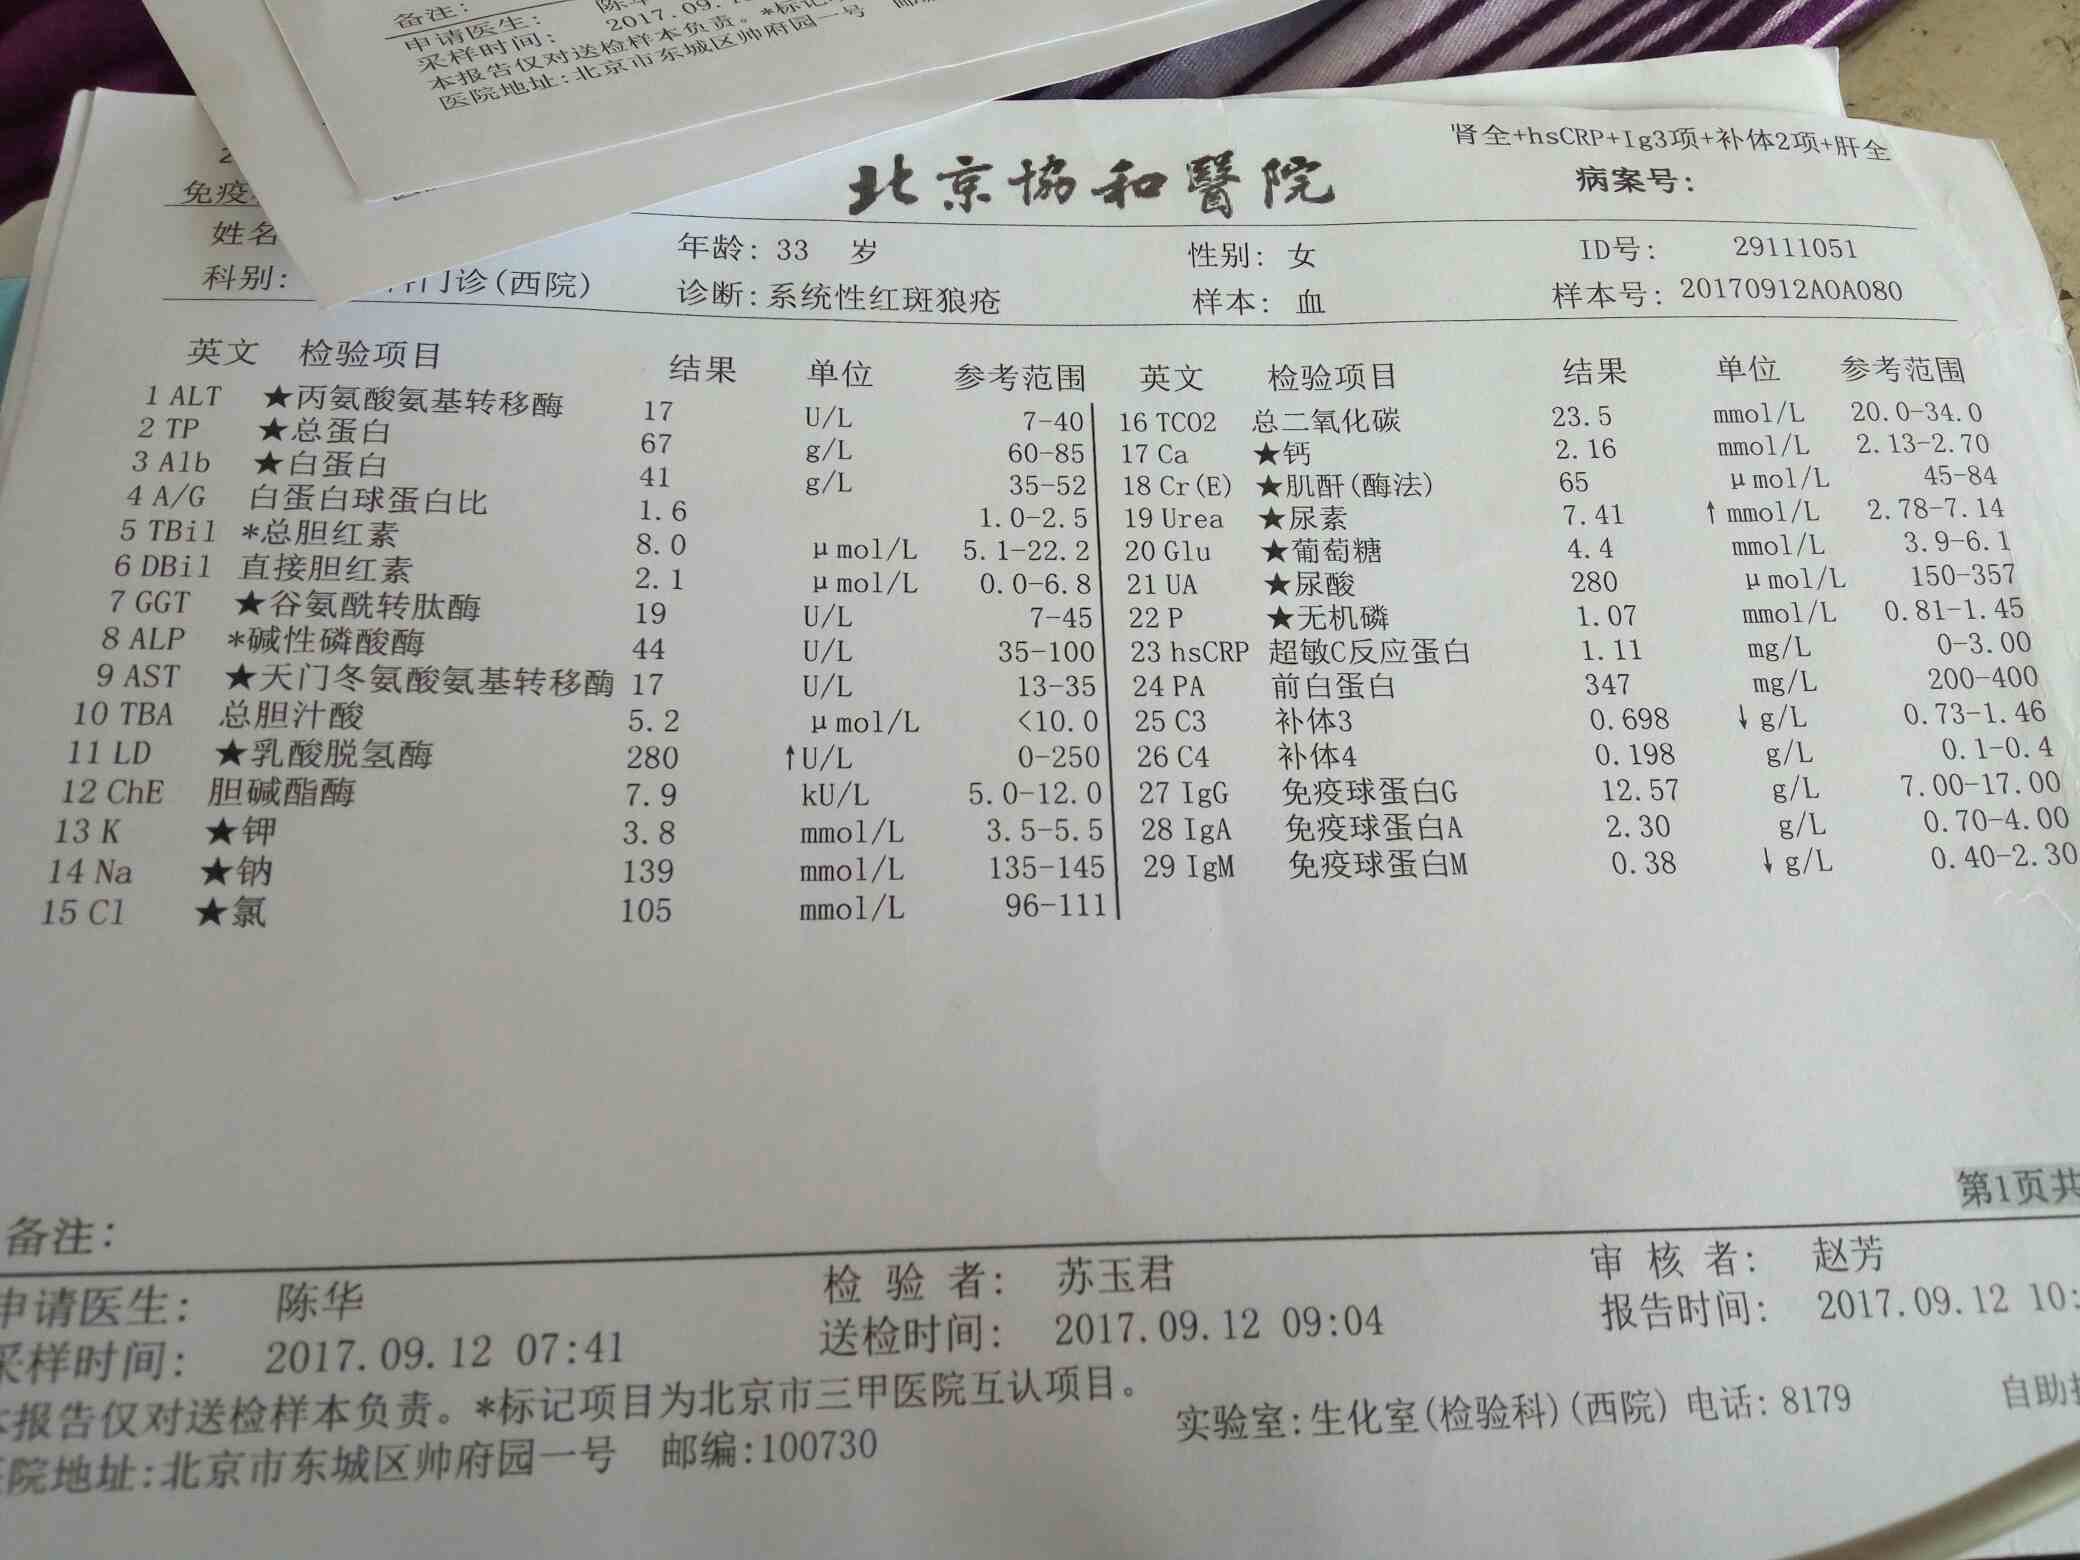 备注:
申请医生:
采样时间: 2017.09.
本报告仅对送检样本负责。*标记
医院地址:北京市东城区帅府园一号
肾全+hsCRP+Ig3项+补体2项+肝全
北京协和醫院
病案号:
免疫
姓名 年龄: 33 岁 性别: 女 ID号: 29111051
科别: 门诊(西院) 诊断: 系统性红斑狼疮 样本: 血 样本号: 20170912A0A080
英文 检验项目 结果 单位 参考范围 英文 检验项目 结果 单位 参考范围
1 ALT ★丙氨酸氨基转移酶 17 U/L 7-40 16 TCO2 总二氧化碳 23.5 mmol/L 20.0-34.0
2 TP ★总蛋白 67 g/L 60-85 17 Ca ★钙 2.16 mmol/L 2.13-2.70
3 Alb ★白蛋白 41 g/L 35-52 18 Cr(E) ★肌酐(酶法) 65 μmol/L 45-84
4 A/G 白蛋白球蛋白比 1.6 1.0-2.5 19 Urea ★尿素 7.41 ↑mmol/L 2.78-7.14
5 TBil *总胆红素 8.0 μmol/L 5.1-22.2 20 Glu ★葡萄糖 4.4 mmol/L 3.9-6.1
6 DBil 直接胆红素 2.1 μmol/L 0.0-6.8 21 UA ★尿酸 280 μmol/L 150-357
7 GGT ★谷氨酰转肽酶 19 U/L 7-45 22 P ★无机磷 1.07 mmol/L 0.81-1.45
8 ALP *碱性磷酸酶 44 U/L 35-100 23 hsCRP 超敏C反应蛋白 1.11 mg/L 0-3.00
9 AST ★天门冬氨酸氨基转移酶 17 U/L 13-35 24 PA 前白蛋白 347 mg/L 200-400
10 TBA 总胆汁酸 5.2 μmol/L <10.0 25 C3 补体3 0.698 ↓g/L 0.73-1.46
11 LD ★乳酸脱氢酶 280 ↑U/L 0-250 26 C4 补体4 0.198 g/L 0.1-0.4
12 ChE 胆碱酯酶 7.9 kU/L 5.0-12.0 27 IgG 免疫球蛋白G 12.57 g/L 7.00-17.00
13 K ★钾 3.8 mmol/L 3.5-5.5 28 IgA 免疫球蛋白A 2.30 g/L 0.70-4.00
14 Na ★钠 139 mmol/L 135-145 29 IgM 免疫球蛋白M 0.38 ↓g/L 0.40-2.30
15 Cl ★氯 105 mmol/L 96-111
第1页共
备注:
申请医生: 陈华 检 验 者: 苏玉君 审 核 者: 赵芳
采样时间: 2017.09.12 07:41 送检时间: 2017.09.12 09:04 报告时间: 2017.09.12 10:
本报告仅对送检样本负责。*标记项目为北京市三甲医院互认项目。 实验室:生化室(检验科)(西院) 电话: 8179 自助
医院地址:北京市东城区帅府园一号 邮编:100730